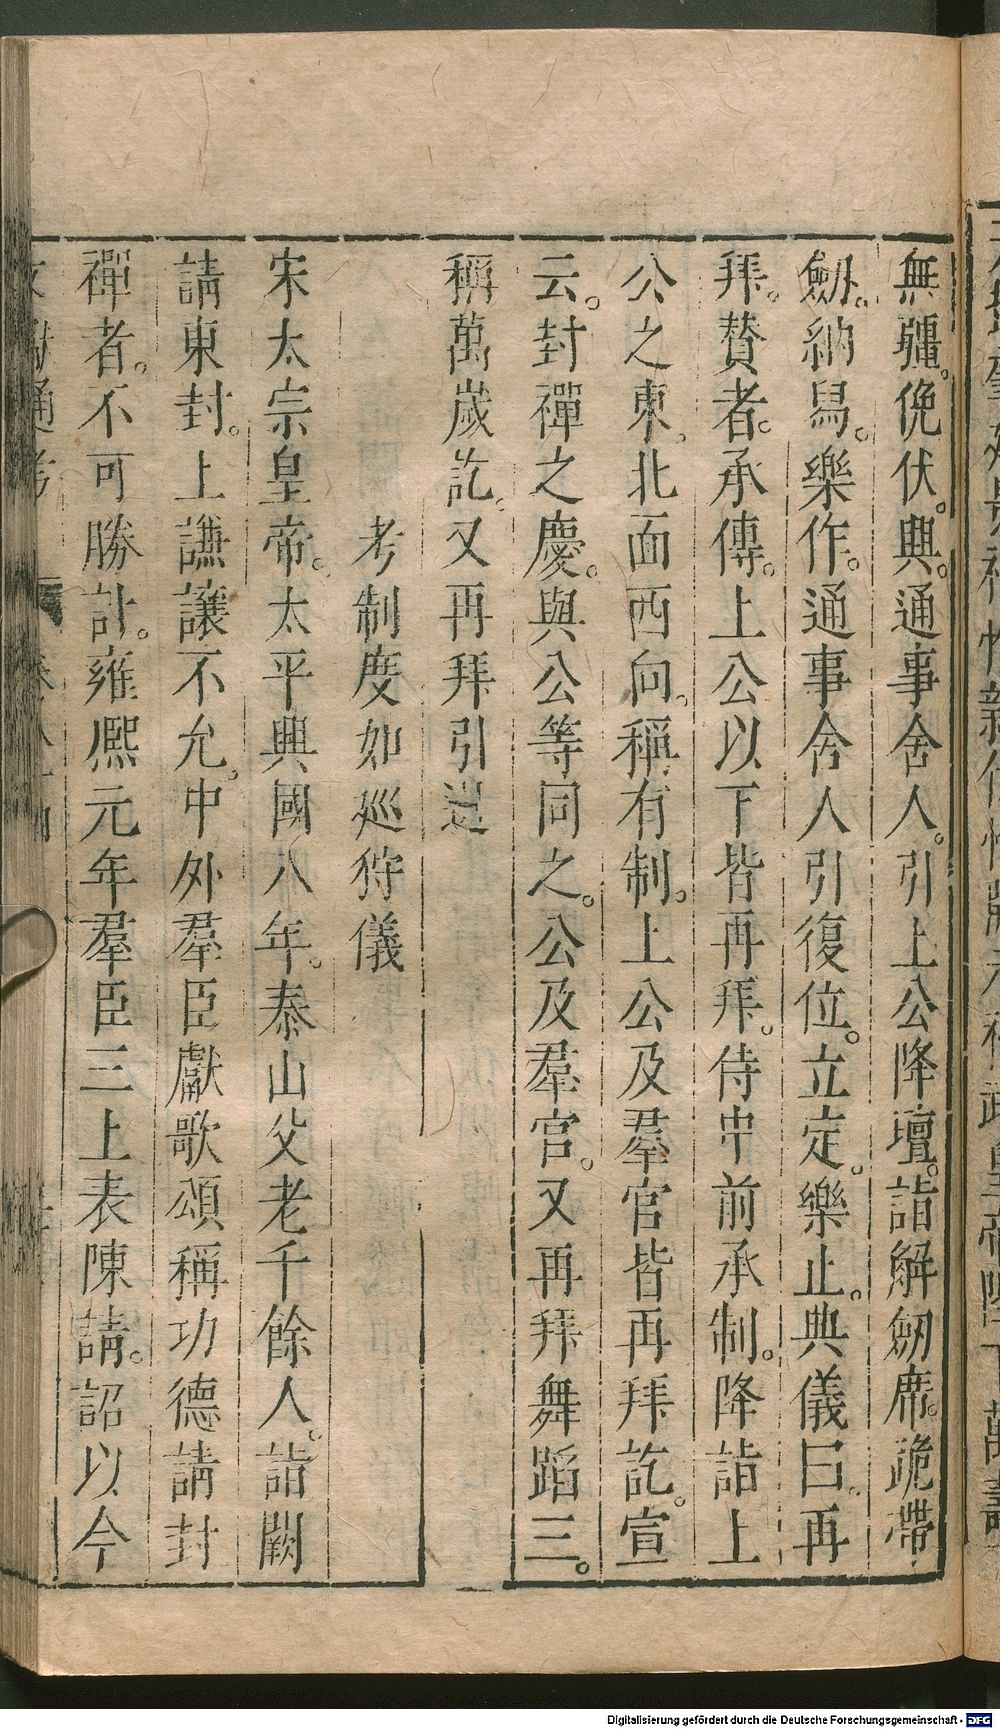 無疆。俛伏。興。通事舍人。引上公降壇。詣解劒席。跪帶
劒。納舄。樂作。通事舍人引復位。立定。樂止。典儀曰。再
拜。贊者。承傳。上公以下皆再拜。侍中前承制。降詣上
公之東。北面西向。稱有制。上公及羣官皆再拜訖。宣
云。封禪之慶。與公等同之。公及羣官。又再拜舞蹈三。
稱萬歲訖。又再拜引退
考制度如廵狩儀
宋太宗皇帝。太平興國八年。泰山父老千餘人。詣闕
請東封。上謙讓不允。中外羣臣獻歌頌稱功德請封
禪者。不可勝計。雍熙元年羣臣三上表陳請。詔以今
文獻通考
Digitalisierung gefördert durch die Deutsche Forschungsgemeinschaft - DFG